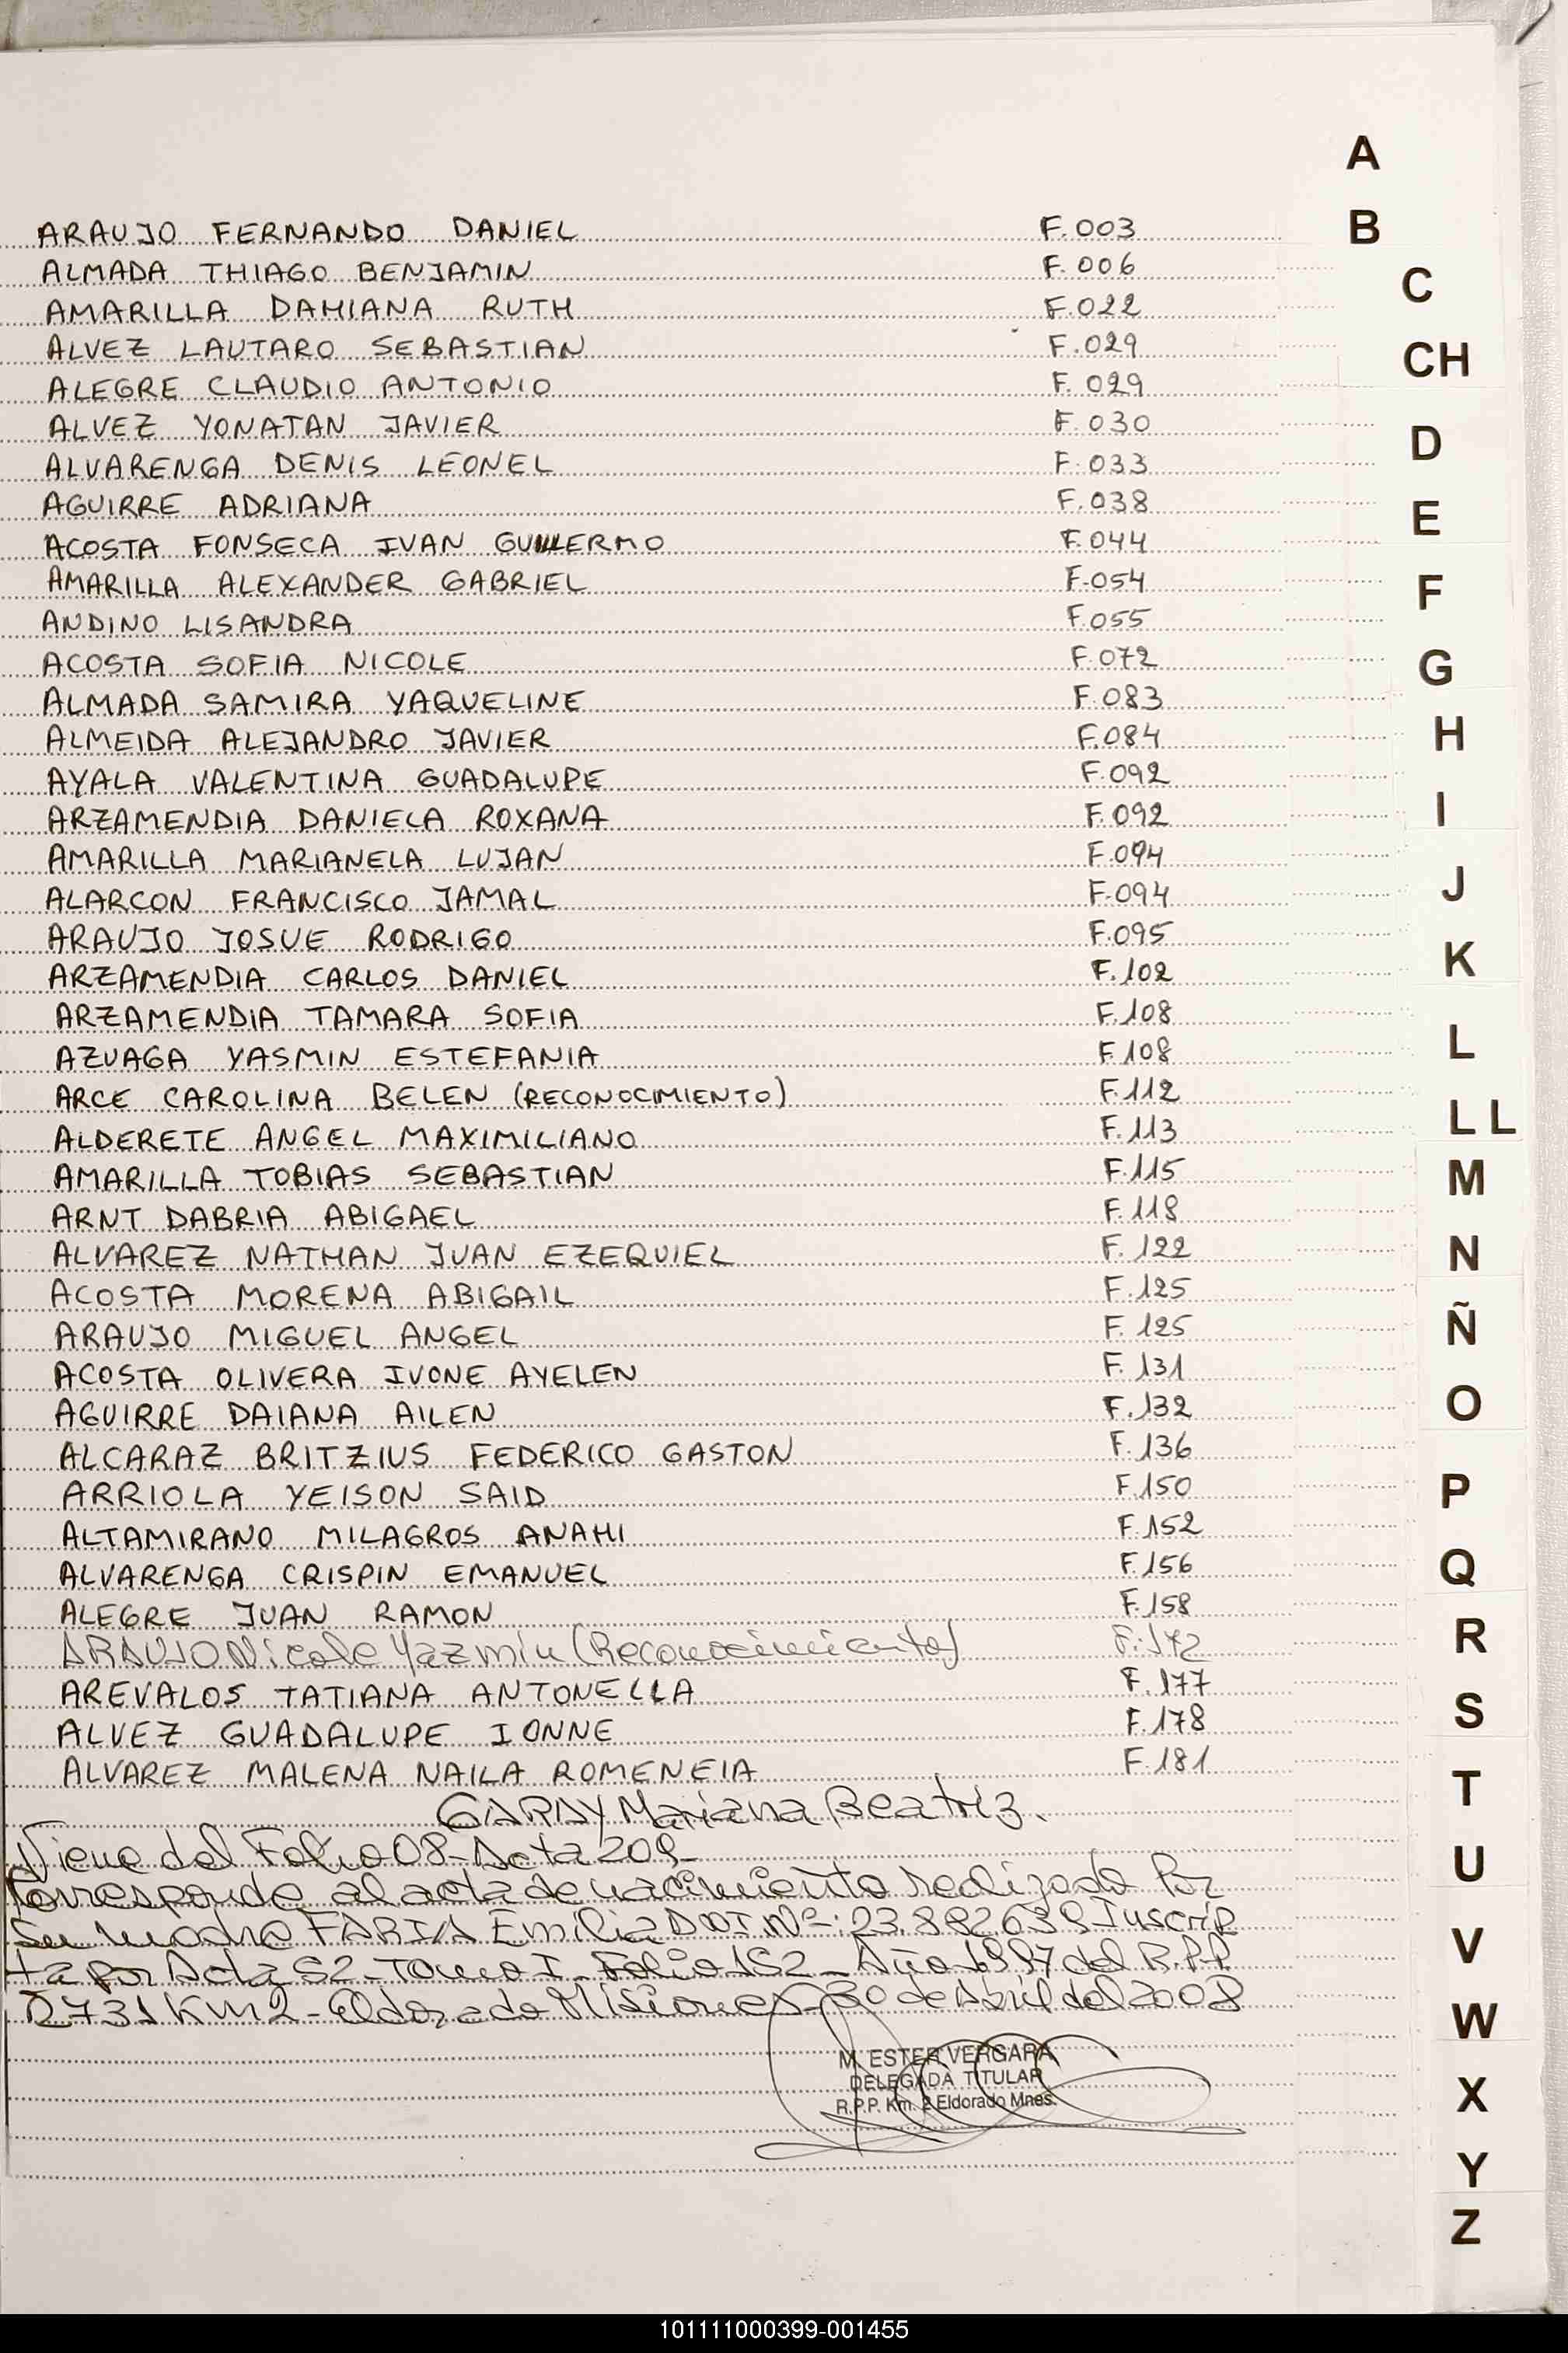 A
ARAUJO FERNANDO DANIEL F.003
B
ALMADA THIAGO BENJAMIN F.006
C
AMARILLA DAMIANA RUTH F.022
ALVEZ LAUTARO SEBASTIAN F.029
CH
ALEGRE CLAUDIO ANTONIO F.029
ALVEZ YONATAN JAVIER F.030
D
ALVARENGA DENIS LEONEL F.033
AGUIRRE ADRIANA F.038
E
ACOSTA FONSECA IVAN GUILLERMO F.044
AMARILLA ALEXANDER GABRIEL F.054
F
ANDINO LISANDRA F.055
ACOSTA SOFIA NICOLE F.072
G
ALMADA SAMIRA YAQUELINE F.083
ALMEIDA ALEJANDRO JAVIER F.084
H
AYALA VALENTINA GUADALUPE F.092
ARZAMENDIA DANIELA ROXANA F.092
I
AMARILLA MARIANELA LUJAN F.094
ALARCON FRANCISCO JAMAL F.094
J
ARAUJO JOSUE RODRIGO F.095
ARZAMENDIA CARLOS DANIEL F.102
K
ARZAMENDIA TAMARA SOFIA F.108
AZUAGA YASMIN ESTEFANIA F.108
L
ARCE CAROLINA BELEN (RECONOCIMIENTO) F.112
ALDERETE ANGEL MAXIMILIANO F.113
LL
AMARILLA TOBIAS SEBASTIAN F.115
M
ARNT DABRIA ABIGAEL F.118
ALVAREZ NATHAN JUAN EZEQUIEL F.122
N
ACOSTA MORENA ABIGAIL F.125
ARAUJO MIGUEL ANGEL F.125
Ñ
ACOSTA OLIVERA IVONE AYELEN F.131
AGUIRRE DAIANA AILEN F.132
O
ALCARAZ BRITZIUS FEDERICO GASTON F.136
ARRIOLA YEISON SAID F.150
P
ALTAMIRANO MILAGROS ANAHI F.152
ALVARENGA CRISPIN EMANUEL F.156
Q
ALEGRE JUAN RAMON F.158
ARAUJO Nicole Yazmin (Reconocimiento) F.172
R
AREVALOS TATIANA ANTONELLA F.177
ALVEZ GUADALUPE IONNE F.178
S
ALVAREZ MALENA NAILA ROMENEIA F.181
T
GARAY Mariana Beatriz.
Viene del Folio 08-Acta 209-
U
Corresponde al acta de nacimiento realizado Por
Su madre FARIA Emilia DNI. Nº: 23.882.639 Inscrip
V
ta por Acta 52-Tomo I-Folio 152-Año 1997 del R.P.P
2731 Km2-Eldorado Misiones-30 de Abril del 2008
W
M. ESTER VERGARA
DELEGADA TITULAR
X
R.P.P. Km. 2 Eldorado Mnes.
Y
Z
101111000399-001455